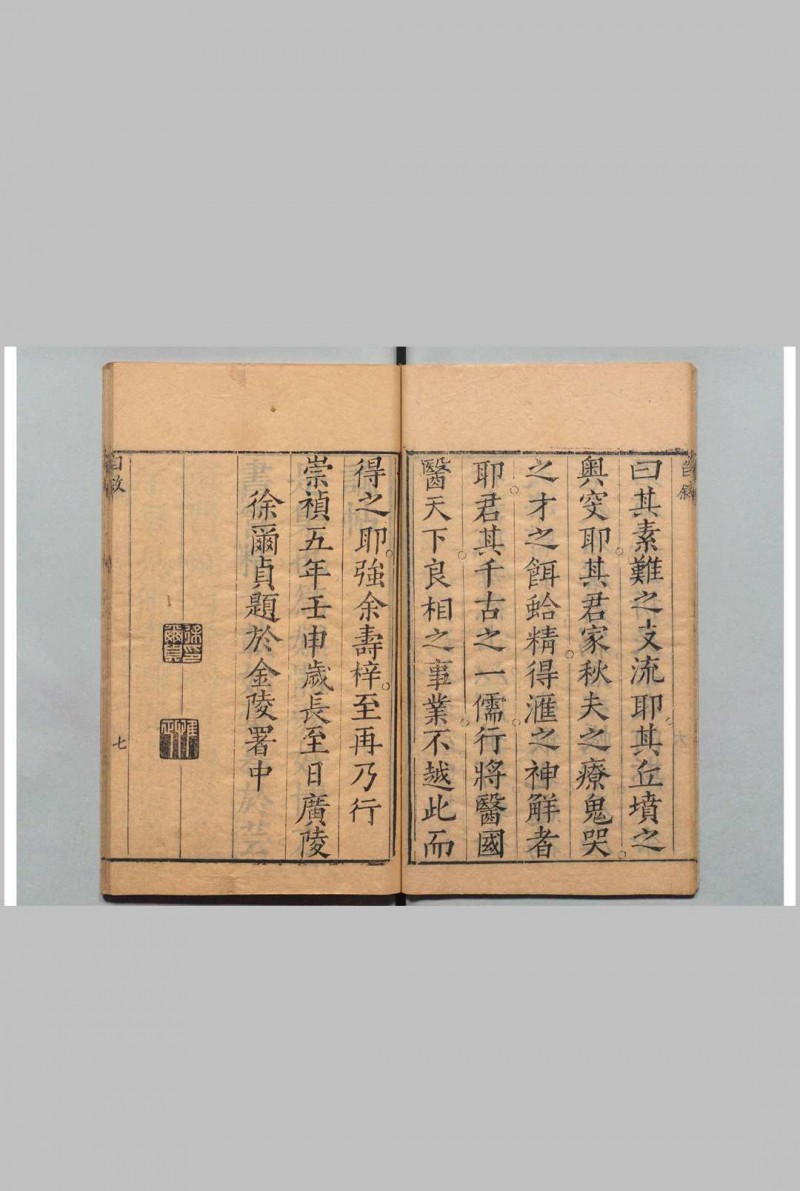 曰其素難之支流耶其丘墳之
奥突耶其君家秋夫之療鬼哭
之才之餌蛤精得滙之神解者
耶君其千古之一儒行將醫國
醫天下良相之事業不越此而
得之耶強余壽梓至再乃行
崇禎五年壬申歲長至日廣陵
徐爾貞題於金陵署中
自敘
七
徐爾貞印